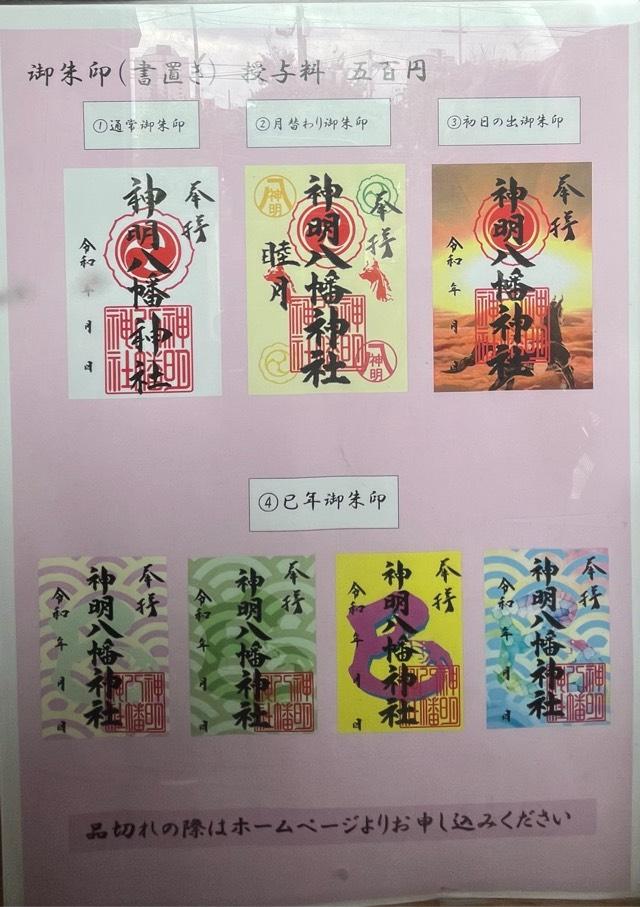 御朱印(書置き) 授与料 五百円
①通常御朱印
②月替わり御朱印
③初日の出御朱印
奉拝
神明八幡神社
令和 年 月 日
奉拝
神明八幡神社
睦月
八神明
八神明
奉拝
神明八幡神社
令和 年 月 日
④巳年御朱印
奉拝
神明八幡神社
令和 年 月 日
奉拝
神明八幡神社
令和 年 月 日
奉拝
神明八幡神社
令和 年 月 日
奉拝
神明八幡神社
令和 年 月 日
品切れの際はホームページよりお申し込みください